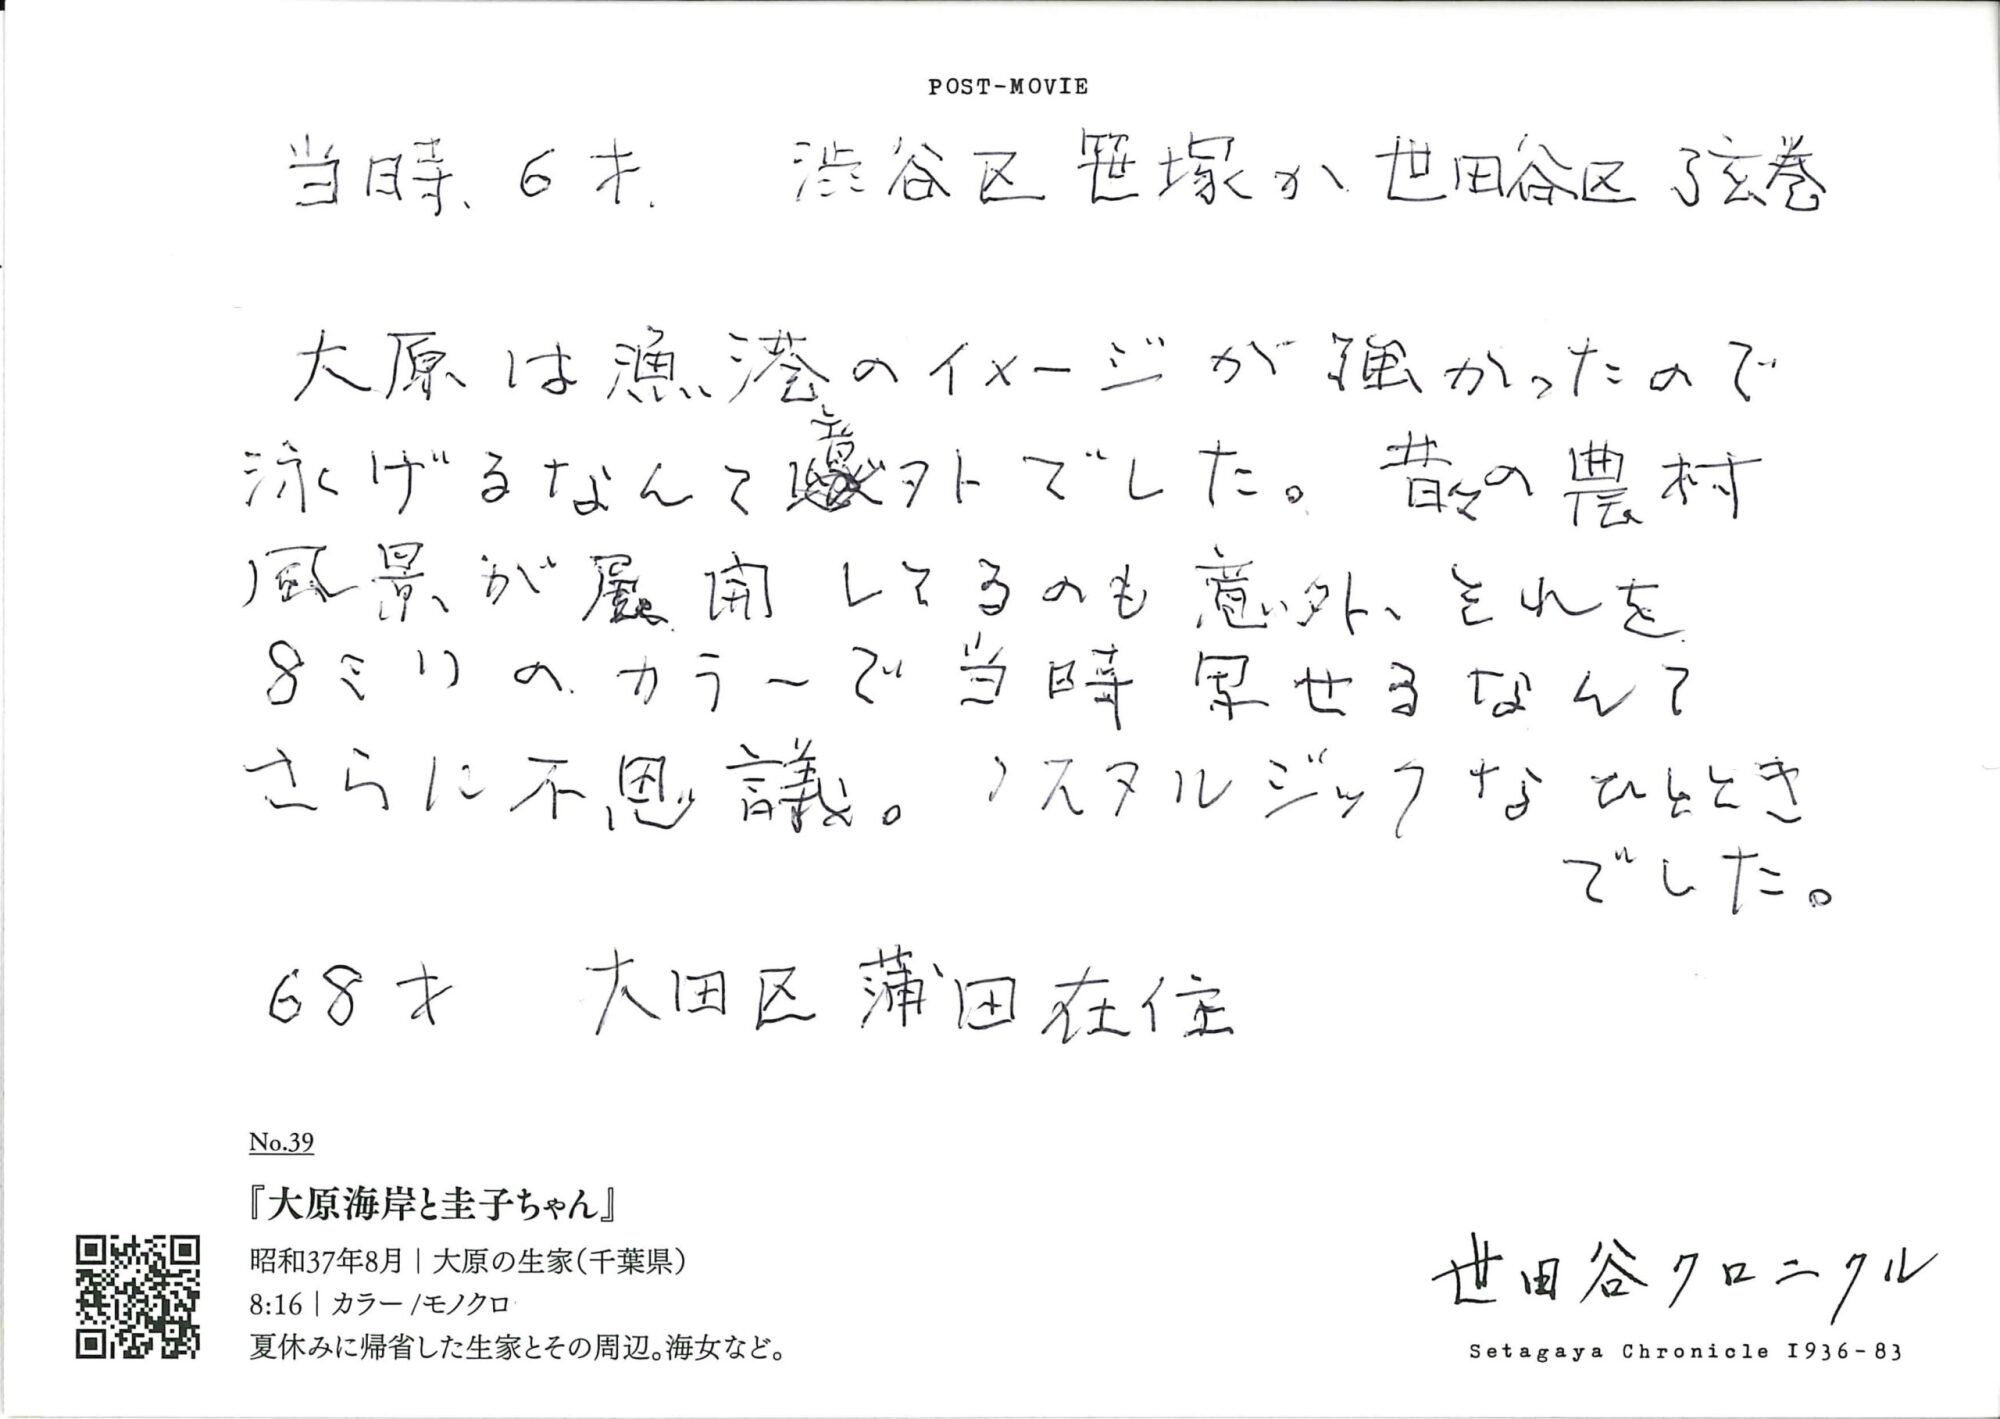 POST-MOVIE
当時、6才、 渋谷区 笹塚か 世田谷区 弦巻
大原は漁港のイメージが強かったので
泳げるなんて意外でした。昔々の農村
風景が展開してるのも意外、それを
8ミリのカラーで当時写せるなんて
さらに不思議。ノスタルジックなひととき
でした。
68才 大田区 蒲田在住
No.39
『大原海岸と圭子ちゃん』
昭和37年8月｜大原の生家（千葉県）
8:16｜カラー/モノクロ
夏休みに帰省した生家とその周辺。海女など。
世田谷クロニクル
Setagaya Chronicle 1936-83